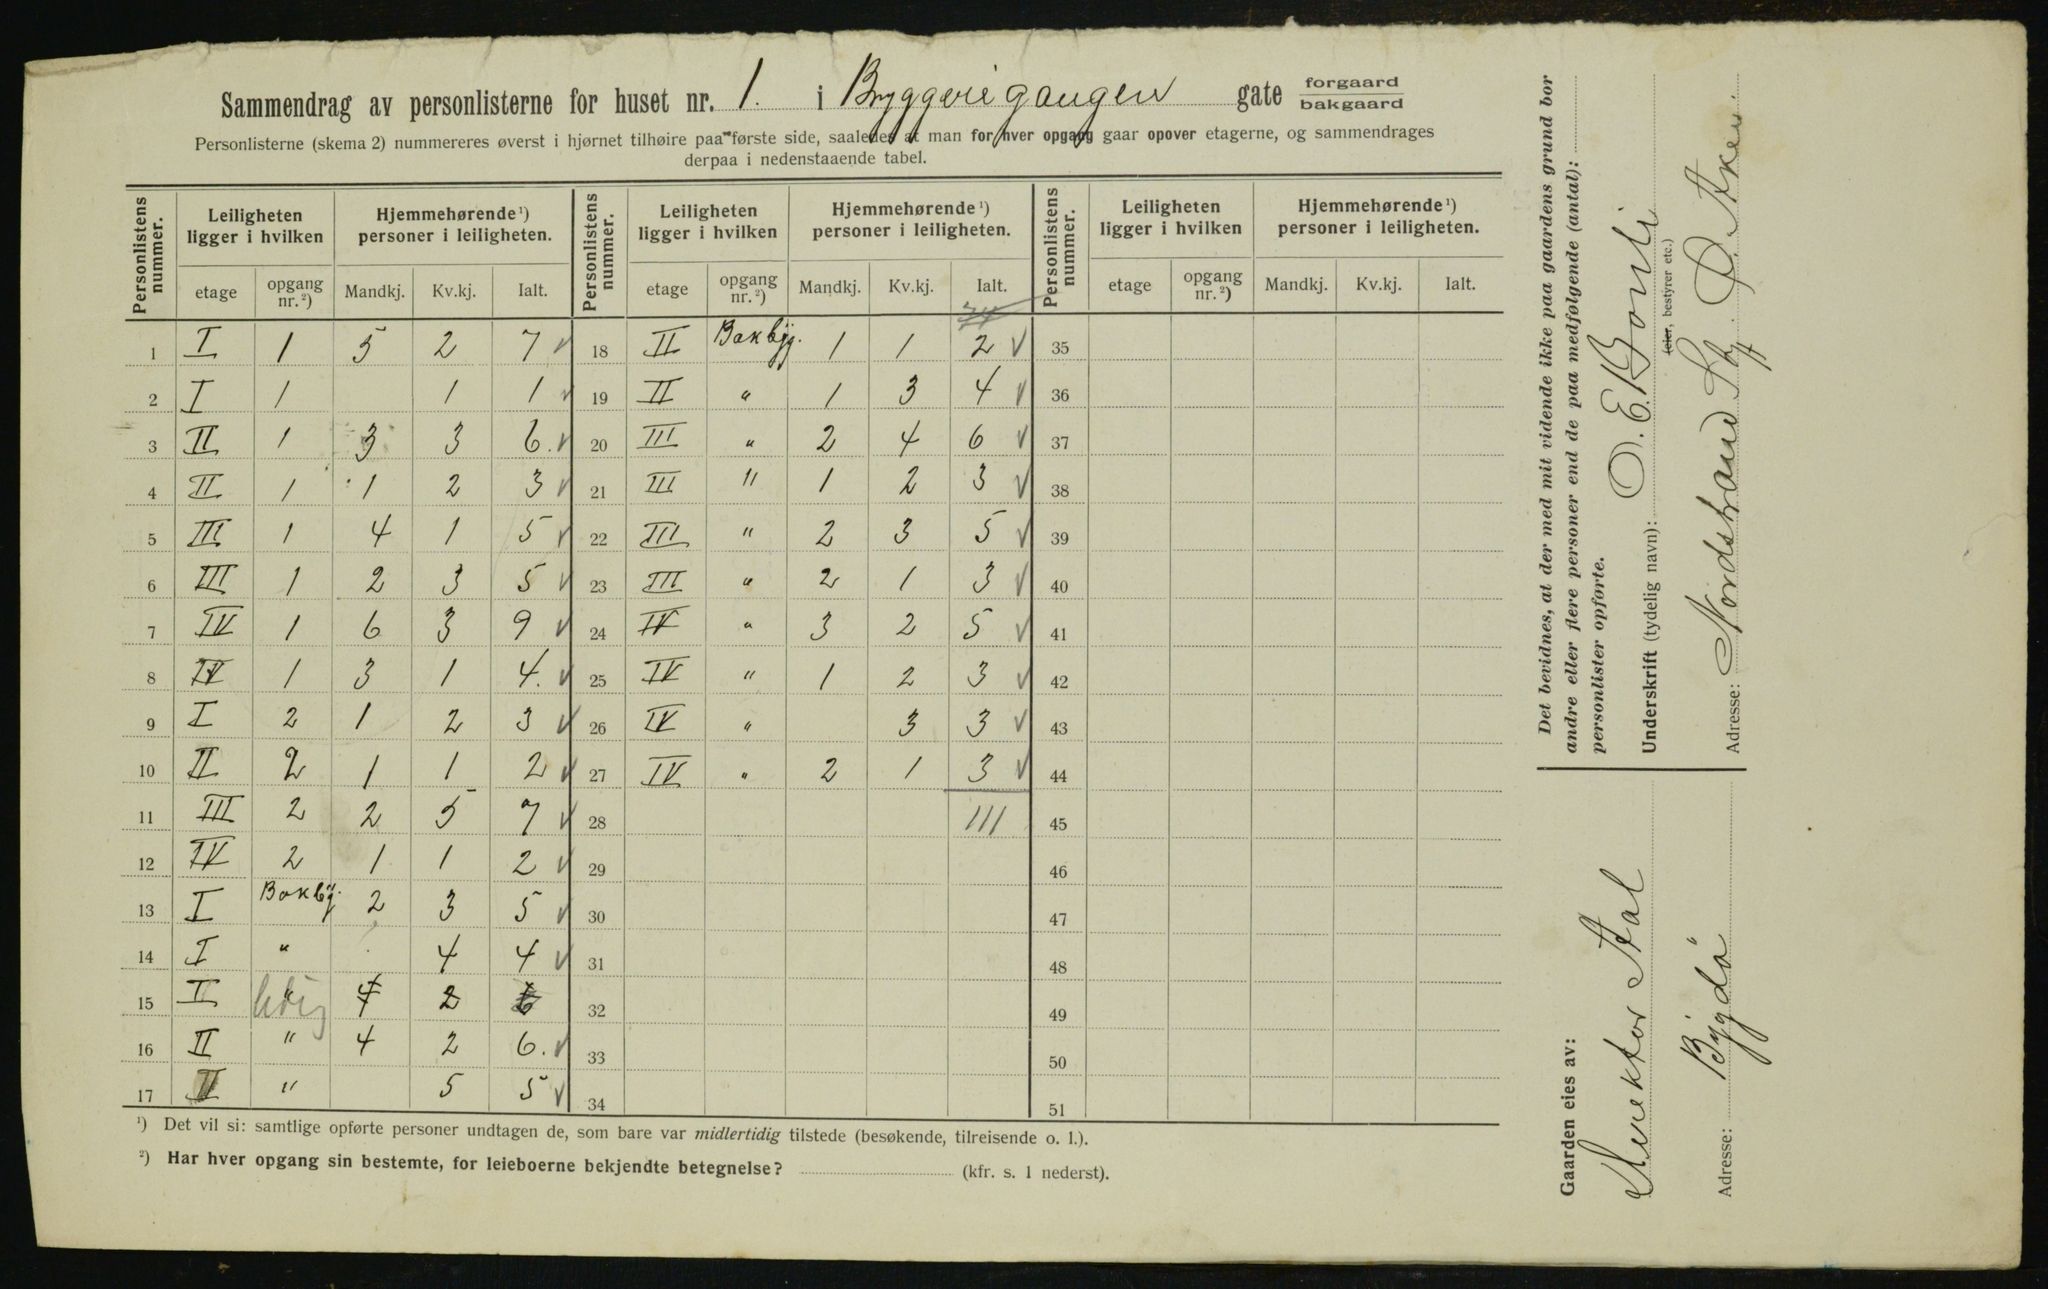 Sammendrag av personlisterne for huset nr. 1. i Bryggeriegangen gate forgaard bakgaard
Personlisterne (skema 2) nummereres øverst i hjørnet tilhøire paa første side, saaledes at man for hver opgang gaar opover etagerne, og sammendrages
derpaa i nedenstaaende tabel.
Personlistens nummer. Leiligheten ligger i hvilken Hjemmehørende ¹) personer i leiligheten. Personlistens nummer. Leiligheten ligger i hvilken Hjemmehørende ¹) personer i leiligheten. Personlistens nummer. Leiligheten ligger i hvilken Hjemmehørende ¹) personer i leiligheten.
etage opgang nr. ²) Mandkj. Kv.kj. Ialt. etage opgang nr. ²) Mandkj. Kv.kj. Ialt. etage opgang nr. ²) Mandkj. Kv.kj. Ialt.
74
1 I 1 5 2 7 ✓ 18 II Bakbyg. 1 1 2 ✓ 35
2 I 1 1 1 ✓ 19 II " 1 3 4 ✓ 36
3 II 1 3 3 6. ✓ 20 III " 2 4 6 ✓ 37
4 II 1 1 2 3 ✓ 21 III " 1 2 3 ✓ 38
5 III 1 4 1 5 ✓ 22 III " 2 3 5 ✓ 39
6 III 1 2 3 5 ✓ 23 III " 2 1 3 ✓ 40
7 IV 1 6 3 9 ✓ 24 IV " 3 2 5 ✓ 41
8 IV 1 3 1 4. ✓ 25 IV " 1 2 3 ✓ 42
9 I 2 1 2 3 ✓ 26 IV " 3 3 ✓ 43
10 II 2 1 1 2 ✓ 27 IV " 2 1 3 ✓ 44
11 III 2 2 5 7 ✓ 28 111 45
12 IV 2 1 1 2 ✓ 29 46
13 I Bakbyg. 2 3 5 ✓ 30 47
14 I " 4 4 ✓ 31 48
15 I " ledig 4 2 6 32 49
16 II " 4 2 6. ✓ 33 50
17 II " 5 5 ✓ 34 51
¹) Det vil si: samtlige opførte personer undtagen de, som bare var midlertidig tilstede (besøkende, tilreisende o. l.).
²) Har hver opgang sin bestemte, for leieboerne bekjendte betegnelse? (kfr. s. 1 nederst).
Det bevidnes, at der med mit vidende ikke paa gaardens grund bor
andre eller flere personer end de paa medfølgende (antal):
personlister opførte.
Underskrift (tydelig navn): O. E. Bonli
leier, bestyrer etc.)
Adresse: Nordstrand St. Ø. Aker
Gaarden eies av:
Direktør Stal
Adresse: Bygdö